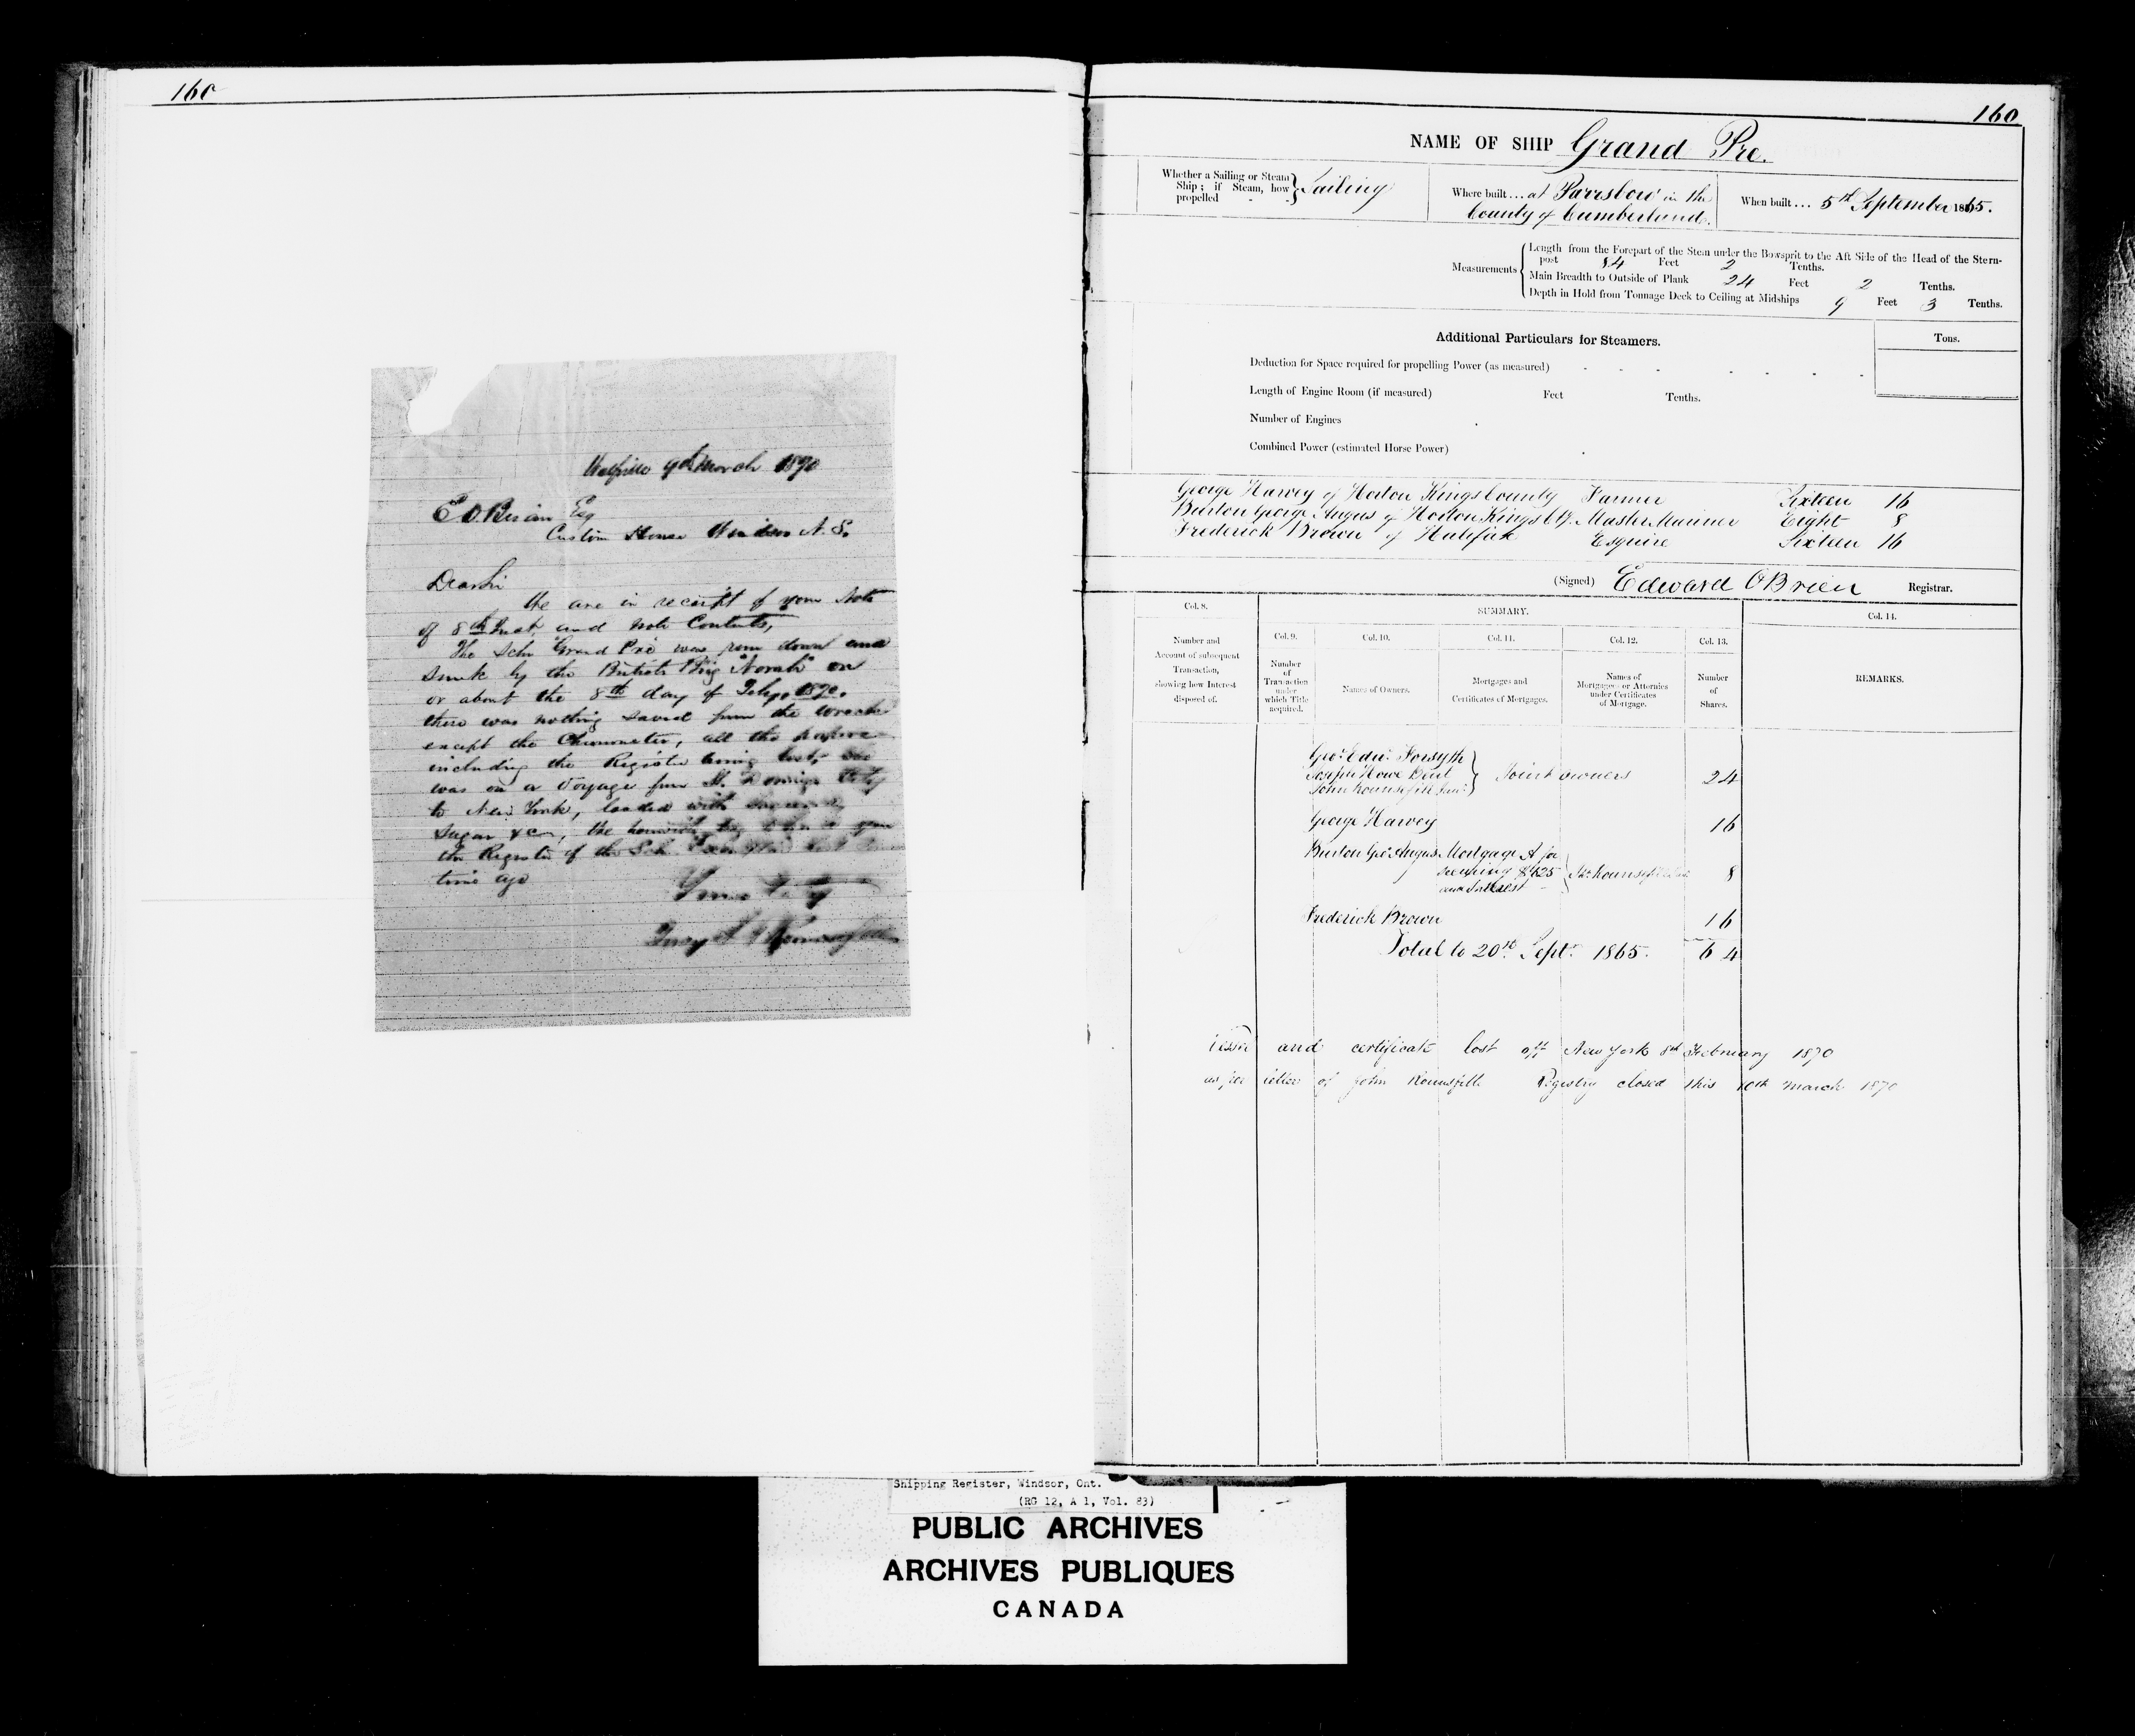 160
Wolfville 9th March 1870
E O.Brian Esq
Custom House Windsor N.S.
Dear Sir
We are in receipt of your Note
of 8th Inst. and Note Contents,
The Schr Grand Pré was run down and
sunk by the British Brig "Norah" on
or about the 8th day of Feby. 1870.
there was nothing saved from the wreck
except the Chronometer, all the papers
including the Register being lost, she
was on a Voyage from St. Domingo City
to New York, loaded with
Sugar &c,
the Register of the Sch
time ago
Yours
160
NAME OF SHIP Grand Pre.
Whether a Sailing or Steam Ship; if Steam, how propelled - - } Sailing
Where built... at Parrsboro in the
County of Cumberland.
When built... 5th September 1865.
Measurements
Length from the Forepart of the Stem under the Bowsprit to the Aft Side of the Head of the Stern-
post 84 Feet 2 Tenths.
Main Breadth to Outside of Plank 24 Feet 2 Tenths.
Depth in Hold from Tonnage Deck to Ceiling at Midships 9 Feet 3 Tenths.
Additional Particulars for Steamers.
Tons.
Deduction for Space required for propelling Power (as measured)
Length of Engine Room (if measured) Feet Tenths.
Number of Engines
Combined Power (estimated Horse Power)
George Harvey of Horton Kings County Farmer Sixteen 16
Burton George Angus of Horton Kings Cty. Master Mariner Eight 8
Frederick Brown of Halifax Esquire Sixteen 16
(Signed) Edward OBrien Registrar.
SUMMARY.
Col. 8.
Number and
Account of subsequent
Transaction,
showing how Interest
disposed of.
Col. 9.
Number
of
Transaction
under
which Title
acquired.
Col. 10.
Names of Owners.
Col. 11.
Mortgages and
Certificates of Mortgages.
Col. 12.
Names of
Mortgagees or Attornies
under Certificates
of Mortgage.
Col. 13.
Number
of
Shares.
Col. 14.
REMARKS.
Geo. Edw. Forsyth
Joseph Howe Bent
John Rounsfell Junr. } Joint owners 24
George Harvey 16
Burton Geo. Angus Mortgage A for
securing $625
and Interest 8
Frederick Brown 16
Total to 20th Septr. 1865. 64
Vessel and certificate lost off New York 8th February 1870
as per letter of John Rounsfell Registry closed this 10th March 1870
Shipping Register, Windsor, Ont.
(RG 12, A 1, Vol. 83)
PUBLIC ARCHIVES
ARCHIVES PUBLIQUES
CANADA